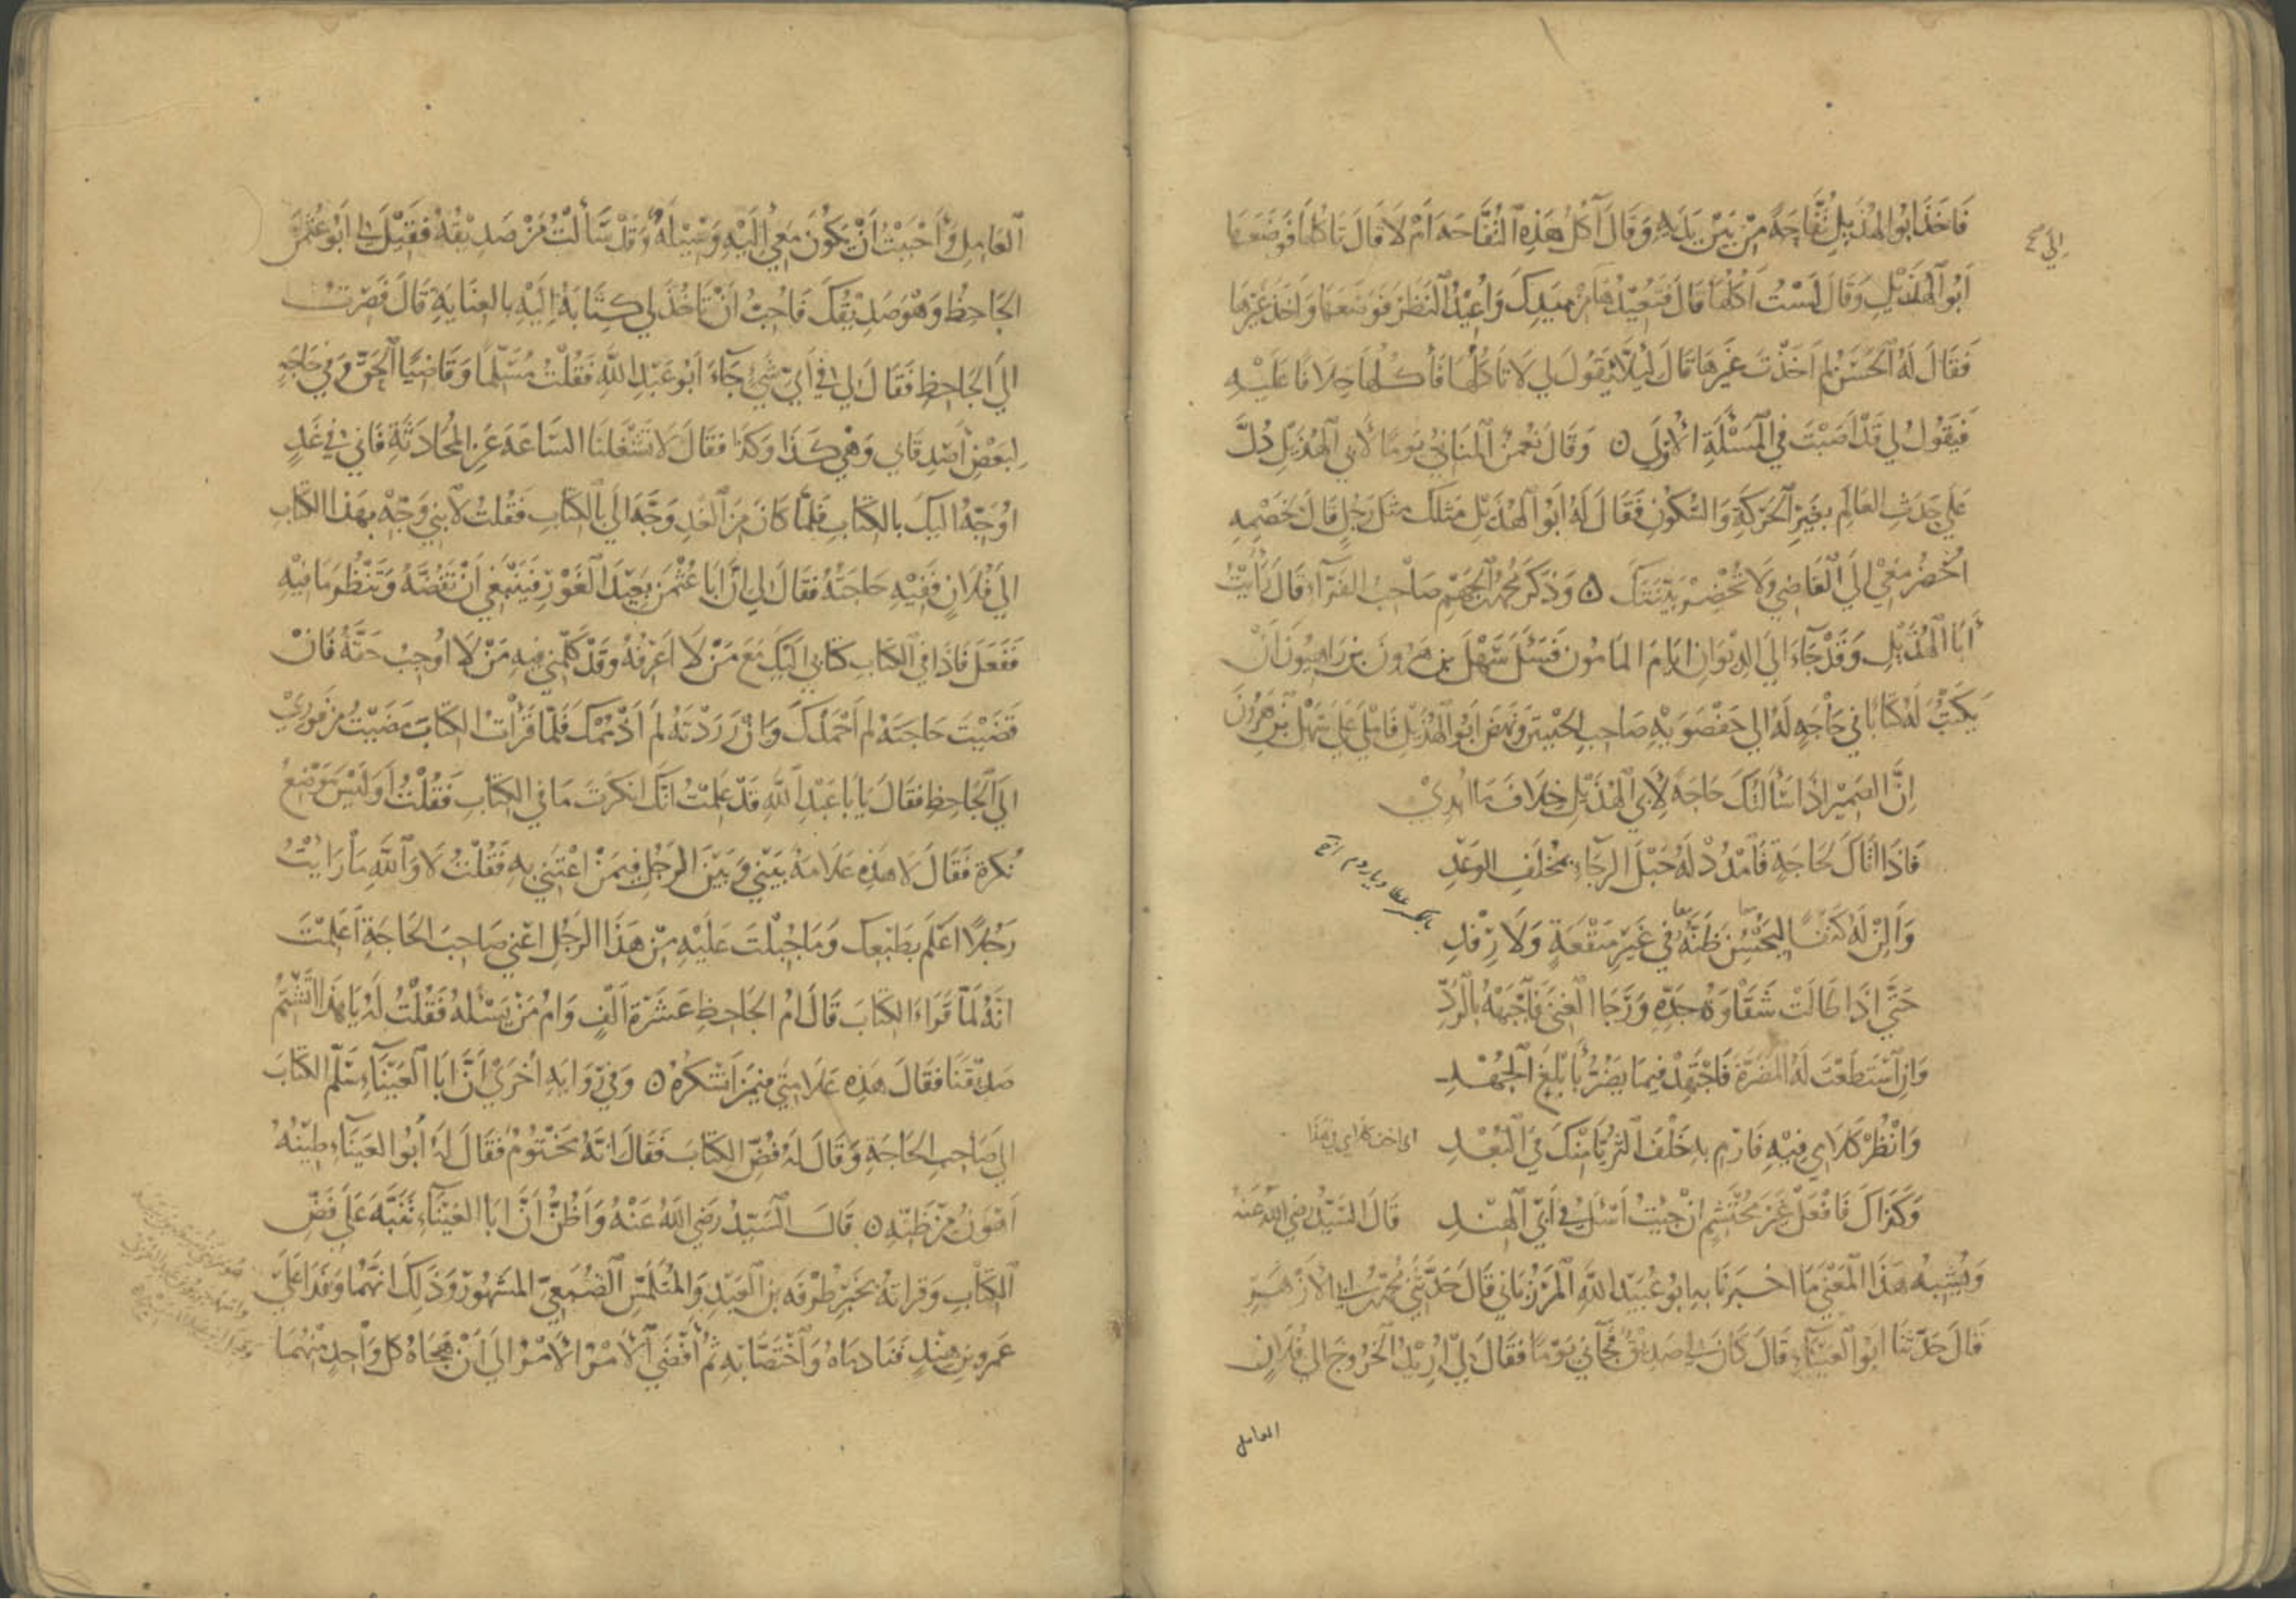 فَاخَذَ ابُو الهُذَيلِ تُفَّاحَةً مِنْ بَيْن يَدَيْهِ وَقَالَ آكُلُ هَذِهِ التُفَّاحَة اَمْ لَا قَالَ تَاكُلُهَا فَوَضَعَهَا
اَبُو الهُذَيْلِ وَقَالَ لَسْتُ آكُلُهَا قَالَ فَتُعِيْدُهَا مِنْ يَدِكَ وَاُعِيْدُ النَظَر فَوَضَعَهَا وَاخَذَ غَيْرَهَا
فَقَالَ لَهُ الحَسَنُ لِمَ اَخَذْتَ غَيْرَهَا قَالَ لِئَلَّا يَقُولَ لِي لَا تَاكُلْهَا فَأكُلُهَا خِلَافًا عَلَيْهِ
فَيَقُولُ لِي قَدْ اَصَبْتَ فِي المَسْئَلَةِ الأُولَى ٥ وَقَالَ نُعْمنُ المنَاني يَومًا لأَبِي الهُذَيلِ دُلَّ
عَلَى حَدَثِ العَالِم بغَيرِ الحَرَكَةِ وَالسُكُونِ فَقَالَ لَهُ اَبُو الهُذَيْلِ مَثَلُكَ مَثَل رَجُلٍ قَالَ لِخَصْمِهِ
اُحْضُر مَعِي الَى القَاضِي وَلَا تُحْضِرْ بَيِّنَتَكَ ٥ وَذَكَرَ مُحَمَّدُ بْنُ الجَهْمِ صَاحِبُ الفَرَّآءِ قَالَ رَأَيْتُ
أَبَا الهُذَيْلِ وَقَدْ جَاءَ الَى الدِيْوَانِ ايَامَ المَامُون فَسَئَلَ سَهْلَ بن هَرُونَ بن رَاهبُونَ اَنْ
يَكْتُبَ لَهُ كتَابًا في حَاجَةٍ لَهُ الى حَفْصَوَيْهِ صَاحِبِ الجَيْشِ وَنَهَضَ اَبُو الهُذَيْلِ فَامْلَى عَلَى سَهْلُ بْن هرُونَ
اِنَّ الضَمِيْر اذَا سَأَلتُكَ حَاجَةً لأَبِي الهُذَيْلِ خِلَافَ مَا اُبْدِيْ
فَاذَا اتَاكَ لِحَاجَةٍ فَامْدُدْ لَهُ حَبْلَ الرَجَاءِ بمُخْلَفِ الوَعْدِ
وَأَلِنْ لَهُ كَنَفًا لِيَحْسُنَ ظَنُّهُ فِي غَيْرِ مَنْفَعَةٍ وَلَا رِفْدِ
حَتَّى اِذَا طَالَتْ شَقَاوَةُ جَدِّهِ وَرَجَا الغِنَى فَاَجْبَهْهُ بِالرَدِّ
وَاِنِ اسْتَطَعْتَ لَهُ المَضَرَّة فَاجْتَهِدْ فِيمَا يَضُرُّ بأَبْلَغِ الجُهْدِ
وَانْظُرْ كَلَامِي فِيْهِ فَارْمِ بِهِ خَلْفَ الثُرَيَّا مِنْكَ فِي البُعْدِ
وَكَذَاكَ فَافْعَلْ غَيْرَ مُحْتَشِمٍ انْ جِئْتُ اَسْئَلُ فِي اَبِي الهِنْدِ قَالَ السَيِّدُ رضِي الله عَنهُ
وَيُشْبِهُ هَذَا المَعْنَى مَا اخْبَرنَا بِهِ ابُو عُبَيْدِ اللهِ المَرْزُبَاني قَالَ حَدَّثَنِي مُحَمَّدُ بن الأزْهَرِ
قَالَ حَدَّثَنَا ابُو العَيْنَاءِ قَالَ كَانَ لِي صَدِيْقٌ فَجَآءَنِي يَوْمًا فَقَالَ لِي اُرِيْدُ الخُرُوجَ الى فُلَانٍ
العامل
العَامِلِ وَأَحْبَبْتُ اَنْ يَكُونَ مَعِي اِلَيْهِ وَسِيْلَةٌ وَقَدْ سَأَلْتُ مَنْ صَدِيْقُهُ فَقِيْلَ لِي اَبُو عُثْمنَ
الجَاحِظُ وَهُوَ صَدِيْقُكَ فَاُحِبُّ اَنْ تَاخُذَ لِي كِتَابَهُ اِلَيْهِ بِالعِنَايَةِ قَالَ فَصِرْتُ
الَى الجَاحِظِ فَقَالَ لِي فِي أَيِّ شَيْءٍ جَآءَ اَبُو عَبْدِ اللهِ فَقُلْتُ مُسَلِّمًا وَقَاضِيًا الحَقَّ وَفِي حَاجَةٍ
لِبَعْضِ أَصْدِقَاي وَهِي كَذَا وَكَذَا فَقَالَ لَا تَشْغَلنَا السَّاعَةَ عَنِ المُحَادَثَةِ فَاني فِي غَدٍ
اُوَجِّهُ الَيكَ بالكتَابِ فَلَمَّا كَانَ مِنَ الغَدِ وَجَّهَ الَيَّ بِالكتَابِ فَقُلتُ لأبني وَجّهْ بهَذا الكتَابِ
الَى فُلَانٍ فَفِيْهِ حَاجَتُهُ فَقَالَ لِي انَّ اَبَا عُثْمنَ بَعِيْدُ الغَوْرِ فَيَنْبَغِي اَنْ تَفُضَّهُ وَتَنْظُرَ مَا فِيْهِ
فَفَعَلَ فَاذَا فِي الكتَابِ كتَابِي الَيْكَ مَعَ مَنْ لَا اَعْرِفُهُ وَقَدْ كَلَّمَنِي فِيهِ مَنْ لَا اُوجِبُ حَقَّهُ فَانْ
قَضَيْتَ حَاجَتَهُ لم اَحْمَدْكَ وَانْ رَدَدْتَهُ لَمْ اَذْمُمْكَ فَلَمَّا قَرَأْتُ الكتَابَ مَضَيْتُ مِنْ فَورِيْ
الَى الجَاحِظِ فَقَالَ يَا بَا عَبْدِ اللهِ قَدْ عَلِمْتُ انَّكَ انكَرْتَ مَا فِي الكتَابِ فَقُلْتُ اَوَلَيْسَ مَوْضِعَ
نُكرَةٍ فَقَالَ لَا هَذِهِ عَلَامَةٌ بَيْنِي وَبَيْنَ الرَجُلِ فِيمَنْ اعْتَنِي بِهِ فَقُلْتُ لَا وَاللهِ مَا رَايْتُ
رَجُلًا اَعْلَمَ بِطَبْعِكَ وَمَا جُبِلْتَ عَلَيْهِ مِنْ هَذَا الرَجُلِ اَعْنِي صَاحِبَ الحَاجَةِ اَعَلِمْتَ
انَّهُ لَمَّا قَرَاءَ الكتَابَ قَالَ اُمُّ الجَاحِظِ عَشَرَةَ اَلْفٍ وَاُمُّ مَنْ يَسْئَلُهُ فَقُلْتُ لَهُ يَا هَذَا اَتَشْتِمُ
صَدِيْقَنَا فَقَالَ هَذِهِ عَلَامَتِي فِيْمَنْ اَشْكُرُهُ ٥ وَفِي رِوَايَةٍ اُخْرَى اَنَّ اَبَا العَيْنَاءِ سَلَّمَ الكتَابَ
الَى صَاحِبِ الحَاجَةِ وَقَالَ لَهُ فُضّ الكتَابَ فَقَالَ انَّهُ مَخْتُومٌ فَقَالَ لَهُ اَبُو العَيْنَاءِ طِيْنُهُ
اَهْوَنُ مِنْ ظَنِّهِ ٥ قَالَ السَيِّدُ رَضِيَ اللهُ عَنْهُ وَاَظُنُّ اَنَّ ابَا العَيْنَاءِ نَبَّهَ عَلَى فَضِّ
الكتَابِ وَقِراتِهُ بخَبَرِ طُرْفَه بن العَبْدِ وَالمُتَلَمِّسِ الضُبَعِيّ المَشْهُورِ وَذَلِكَ انَّهُمَا وَفَدَا عَلَى
عَمرو بنِ هِنْدٍ فَنَادَمَاهُ وَاخْتَصَّا بِهِ ثُمَّ أَفْضَى الأَمْرُ الأَمْرُ الَى أَنْ هَجَاهُ كُلُّ وَاحِدٍ مِنْهُمَا